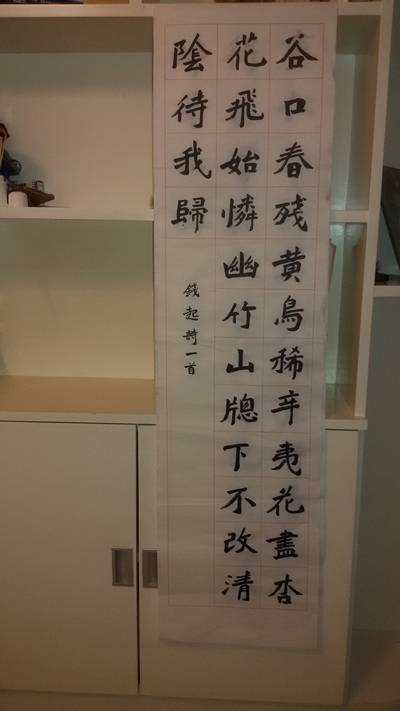 谷口春残黄鳥稀辛夷花盡杏
花飛始憐幽竹山牕下不改清
陰待我歸
錢起詩一首